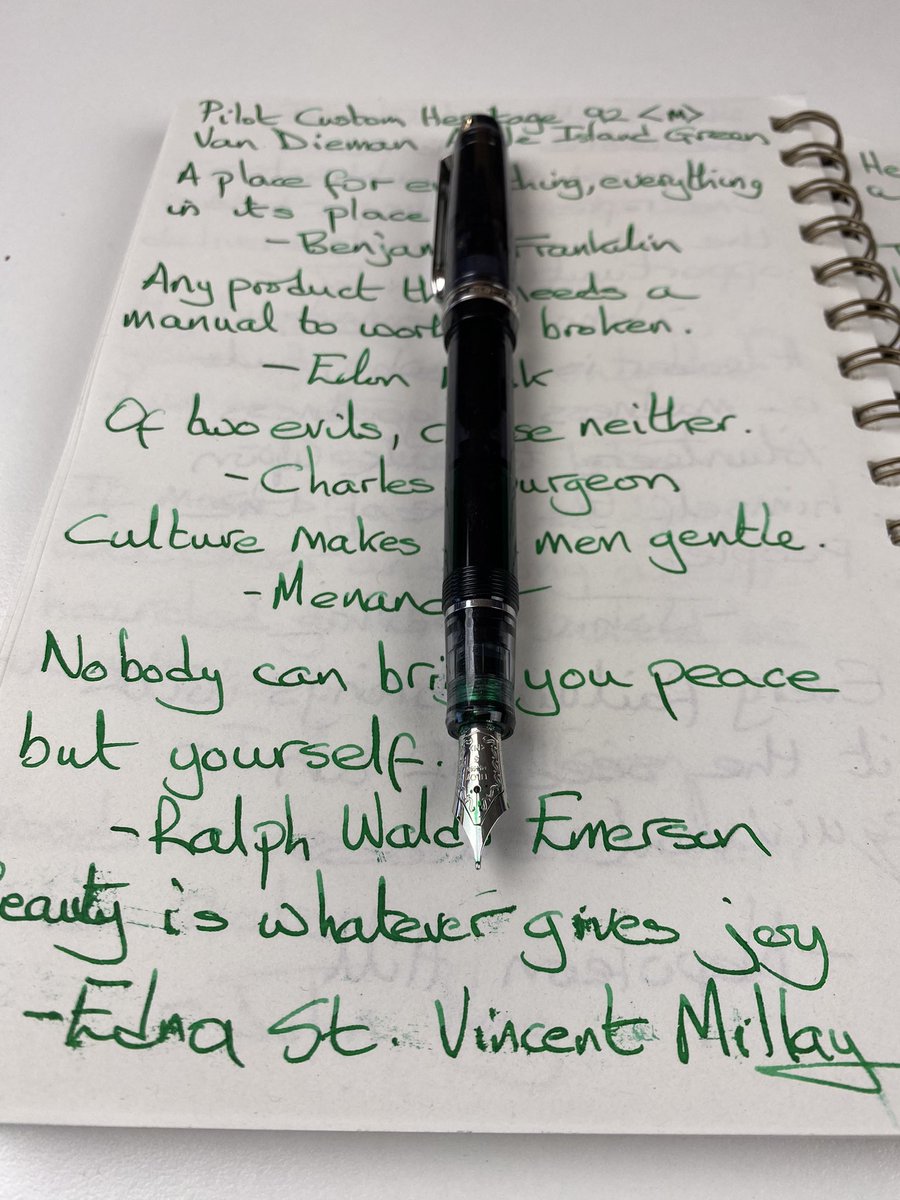 Pilot Custom Heritage 92 <M>
Van Dieman Island Green
A place for everything, everything
in its place
- Benjamin Franklin
Any product that needs a
manual to work broken.
- Elon Musk
Of two evils, choose neither.
- Charles Spurgeon
Culture makes men gentle.
- Menander
Nobody can bring you peace
but yourself.
- Ralph Waldo Emerson
Beauty is whatever gives joy
- Edna St. Vincent Millay
He